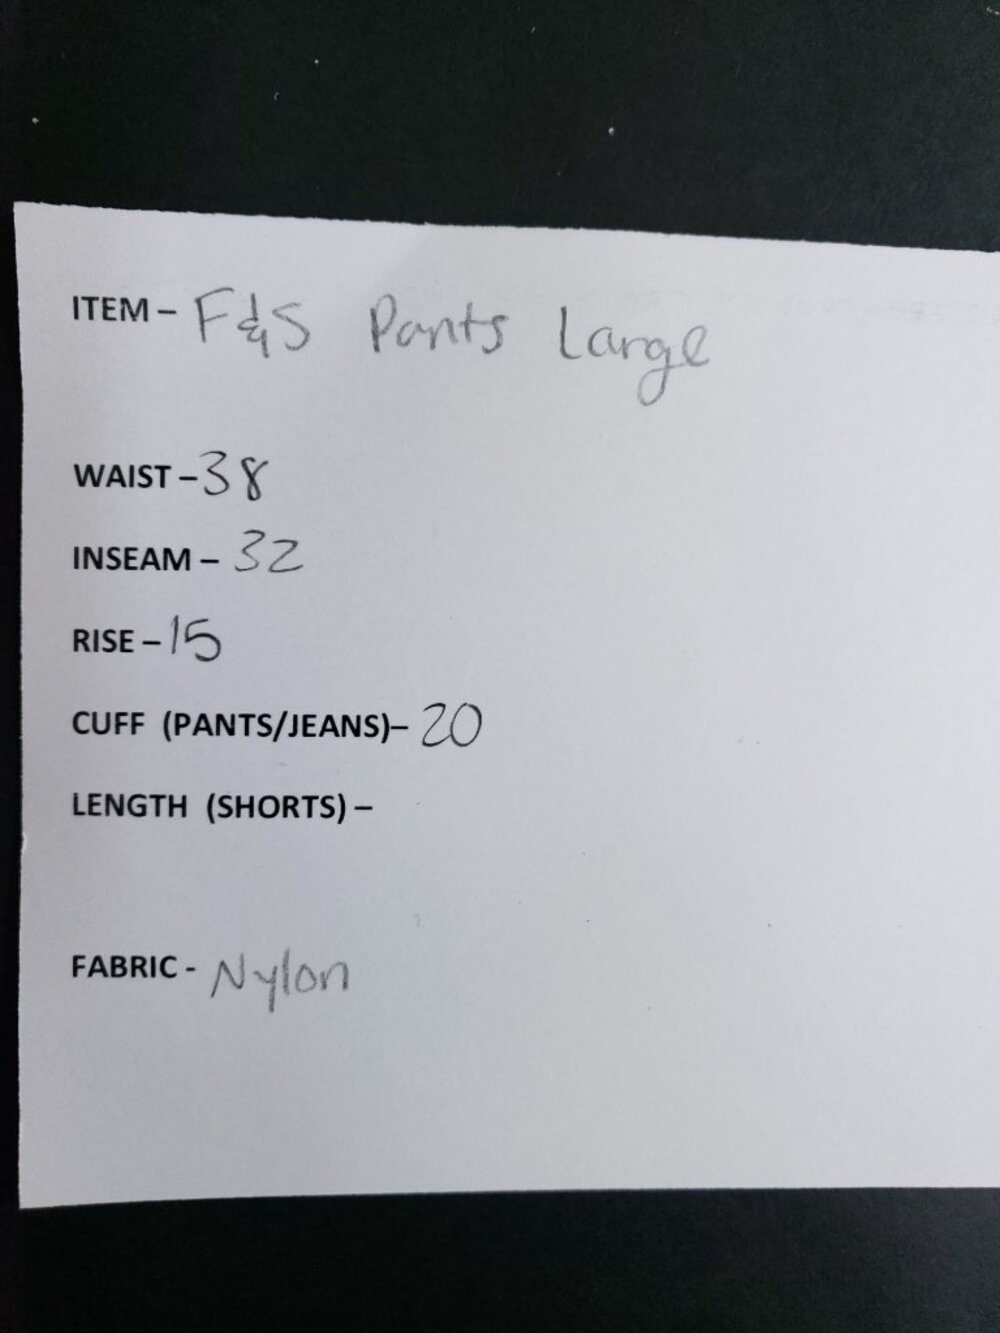 ITEM – F&S Pants Large
WAIST – 38
INSEAM – 32
RISE – 15
CUFF (PANTS/JEANS)– 20
LENGTH (SHORTS) –
FABRIC - Nylon